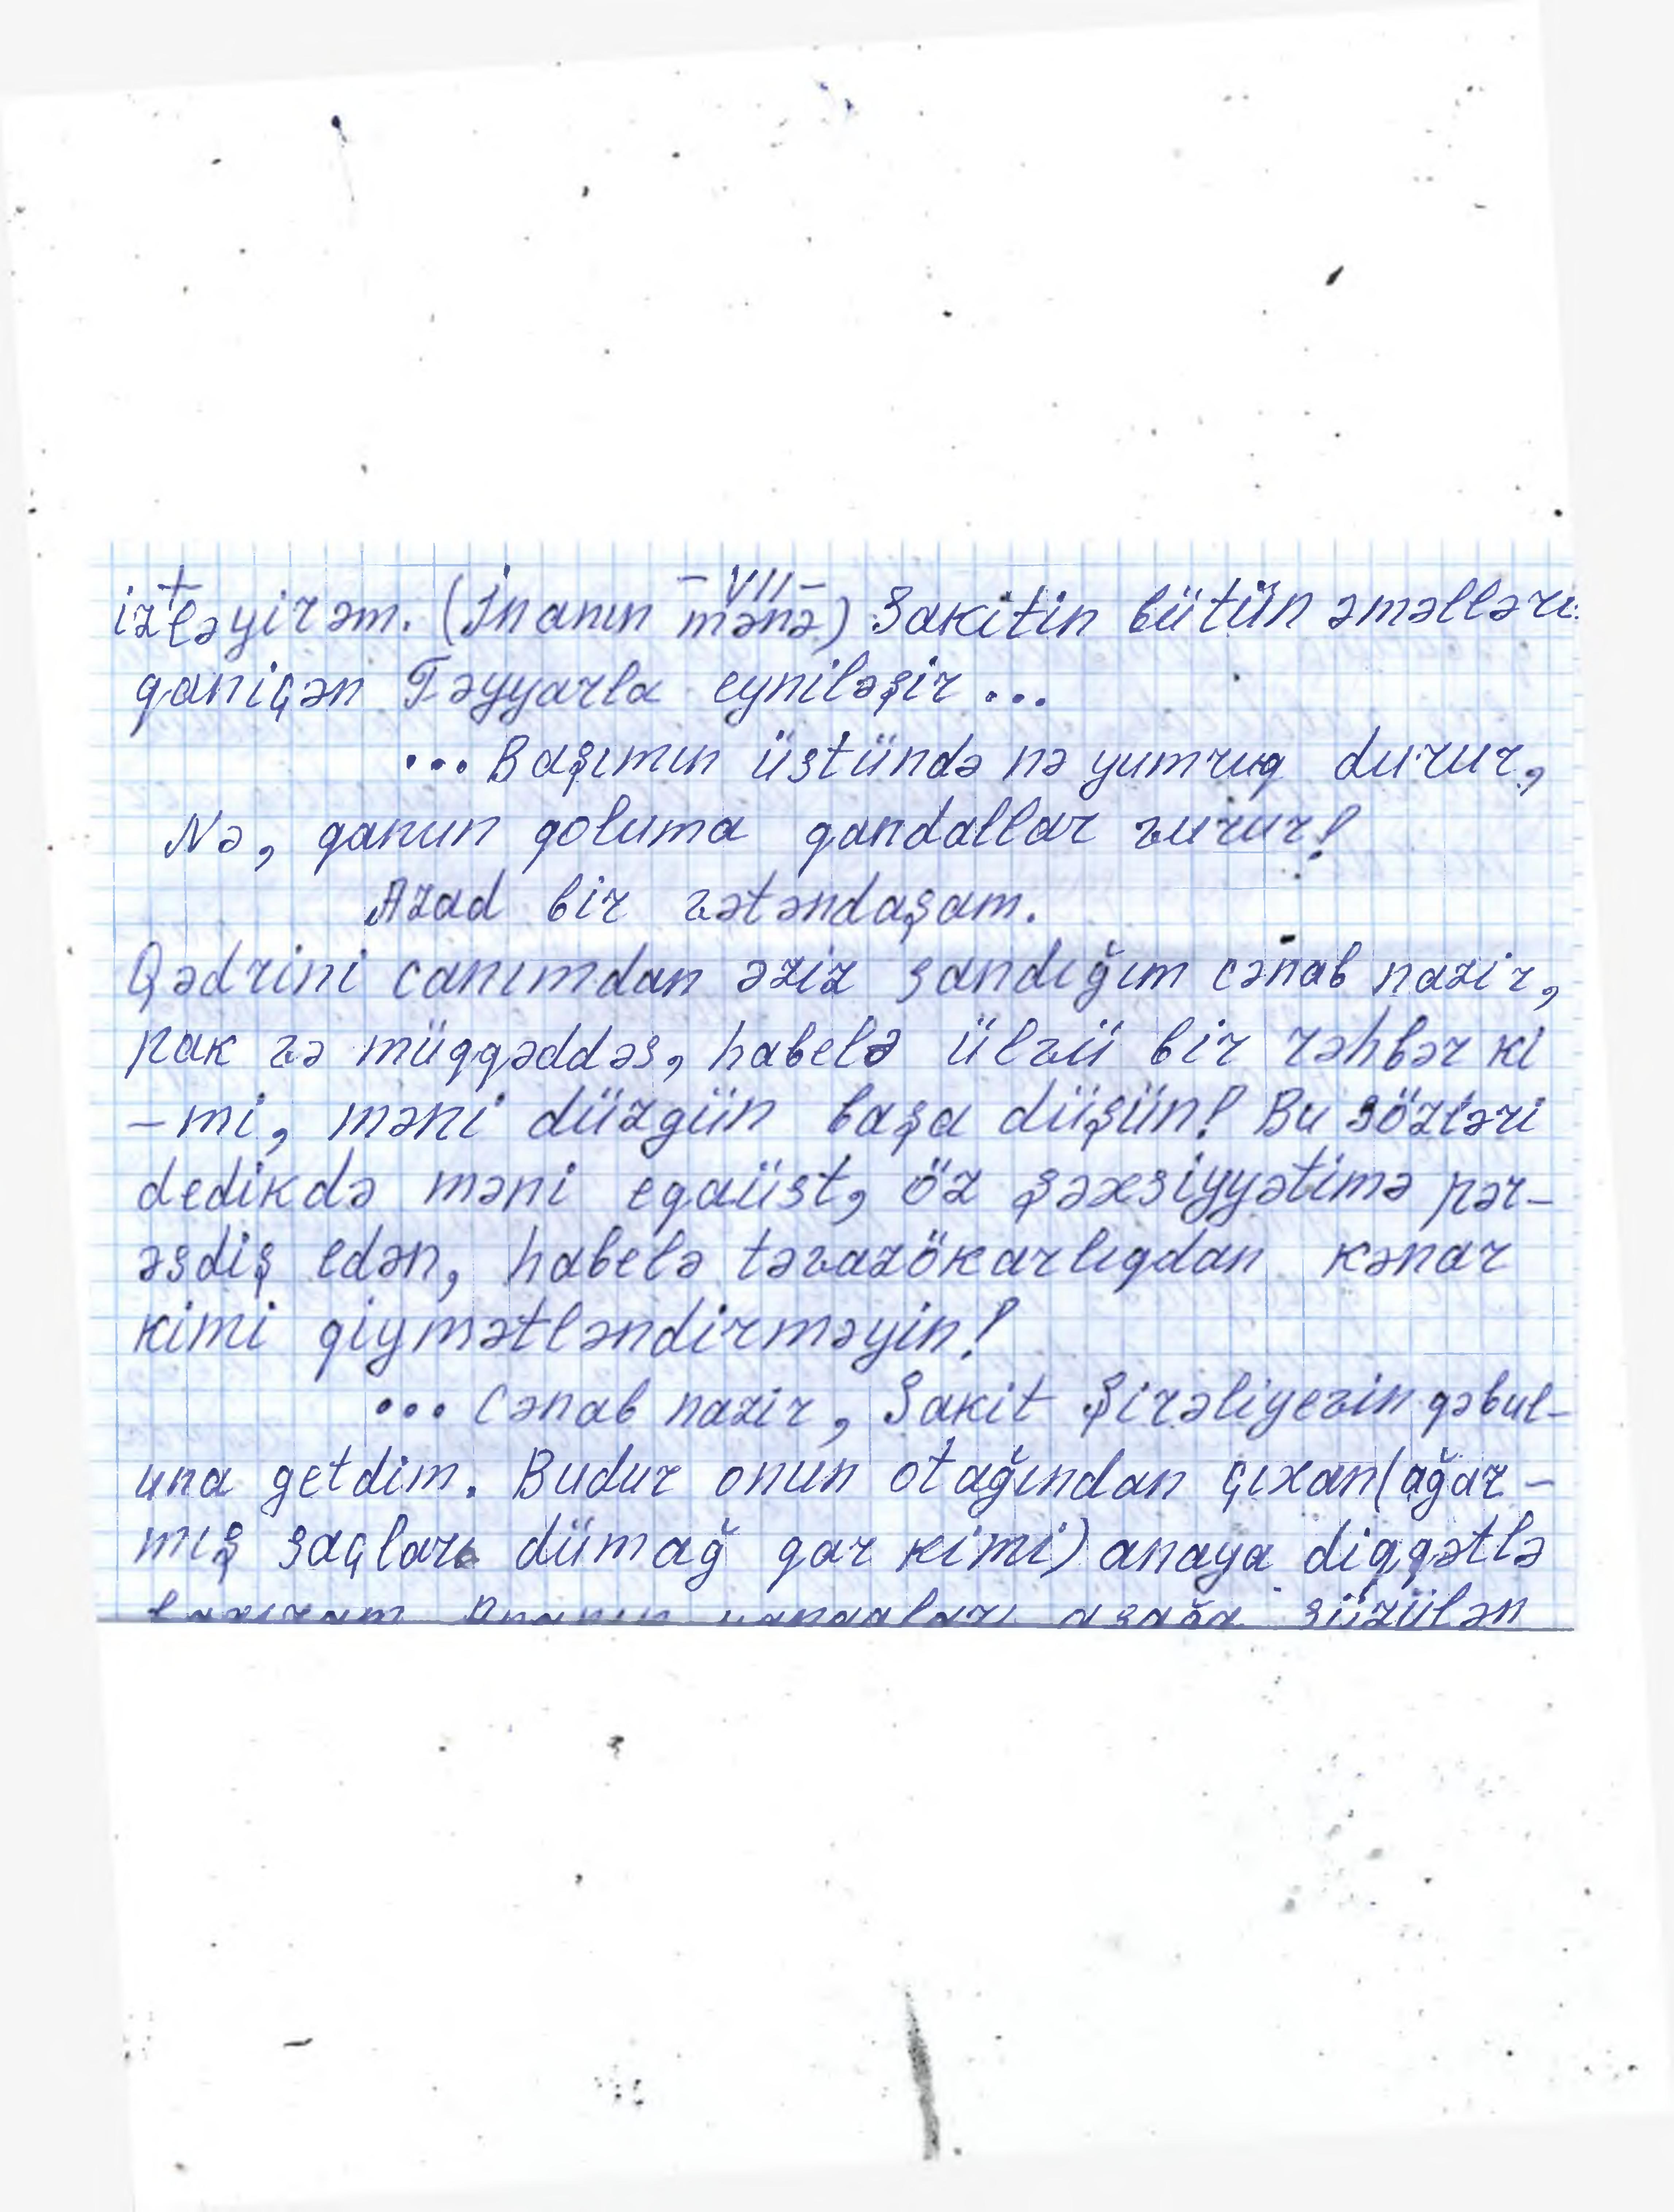 -VII-
izləyirəm. (İnanın mənə) Sakitin bütün əməlləri
qaniçən Təyyarla eyniləşir...
...Başımın üstündə nə yumruq durur,
Nə, qanun qoluma qandallar vurur!
Azad bir vətəndaşam.
Qədrini canımdan əziz sandığım cənab nazir,
pak və müqqəddəs, habelə ülvü bir rəhbər ki
-mi, məni düzgün başa düşün! Bu sözləri
dedikdə məni eqaüst, öz şəxsiyyətimə pər-
əsdiş edən, habelə təvazökarlıqdan kənar
kimi qiymətləndirməyin!
...Cənab nazir, Sakit Şirəliyevin qəbul-
una getdim. Budur onun otağından çıxan (ağar-
mış saçları dümağ qar kimi) anaya diqqətlə
baxıram Ananın yanaqları aşağa süzülən